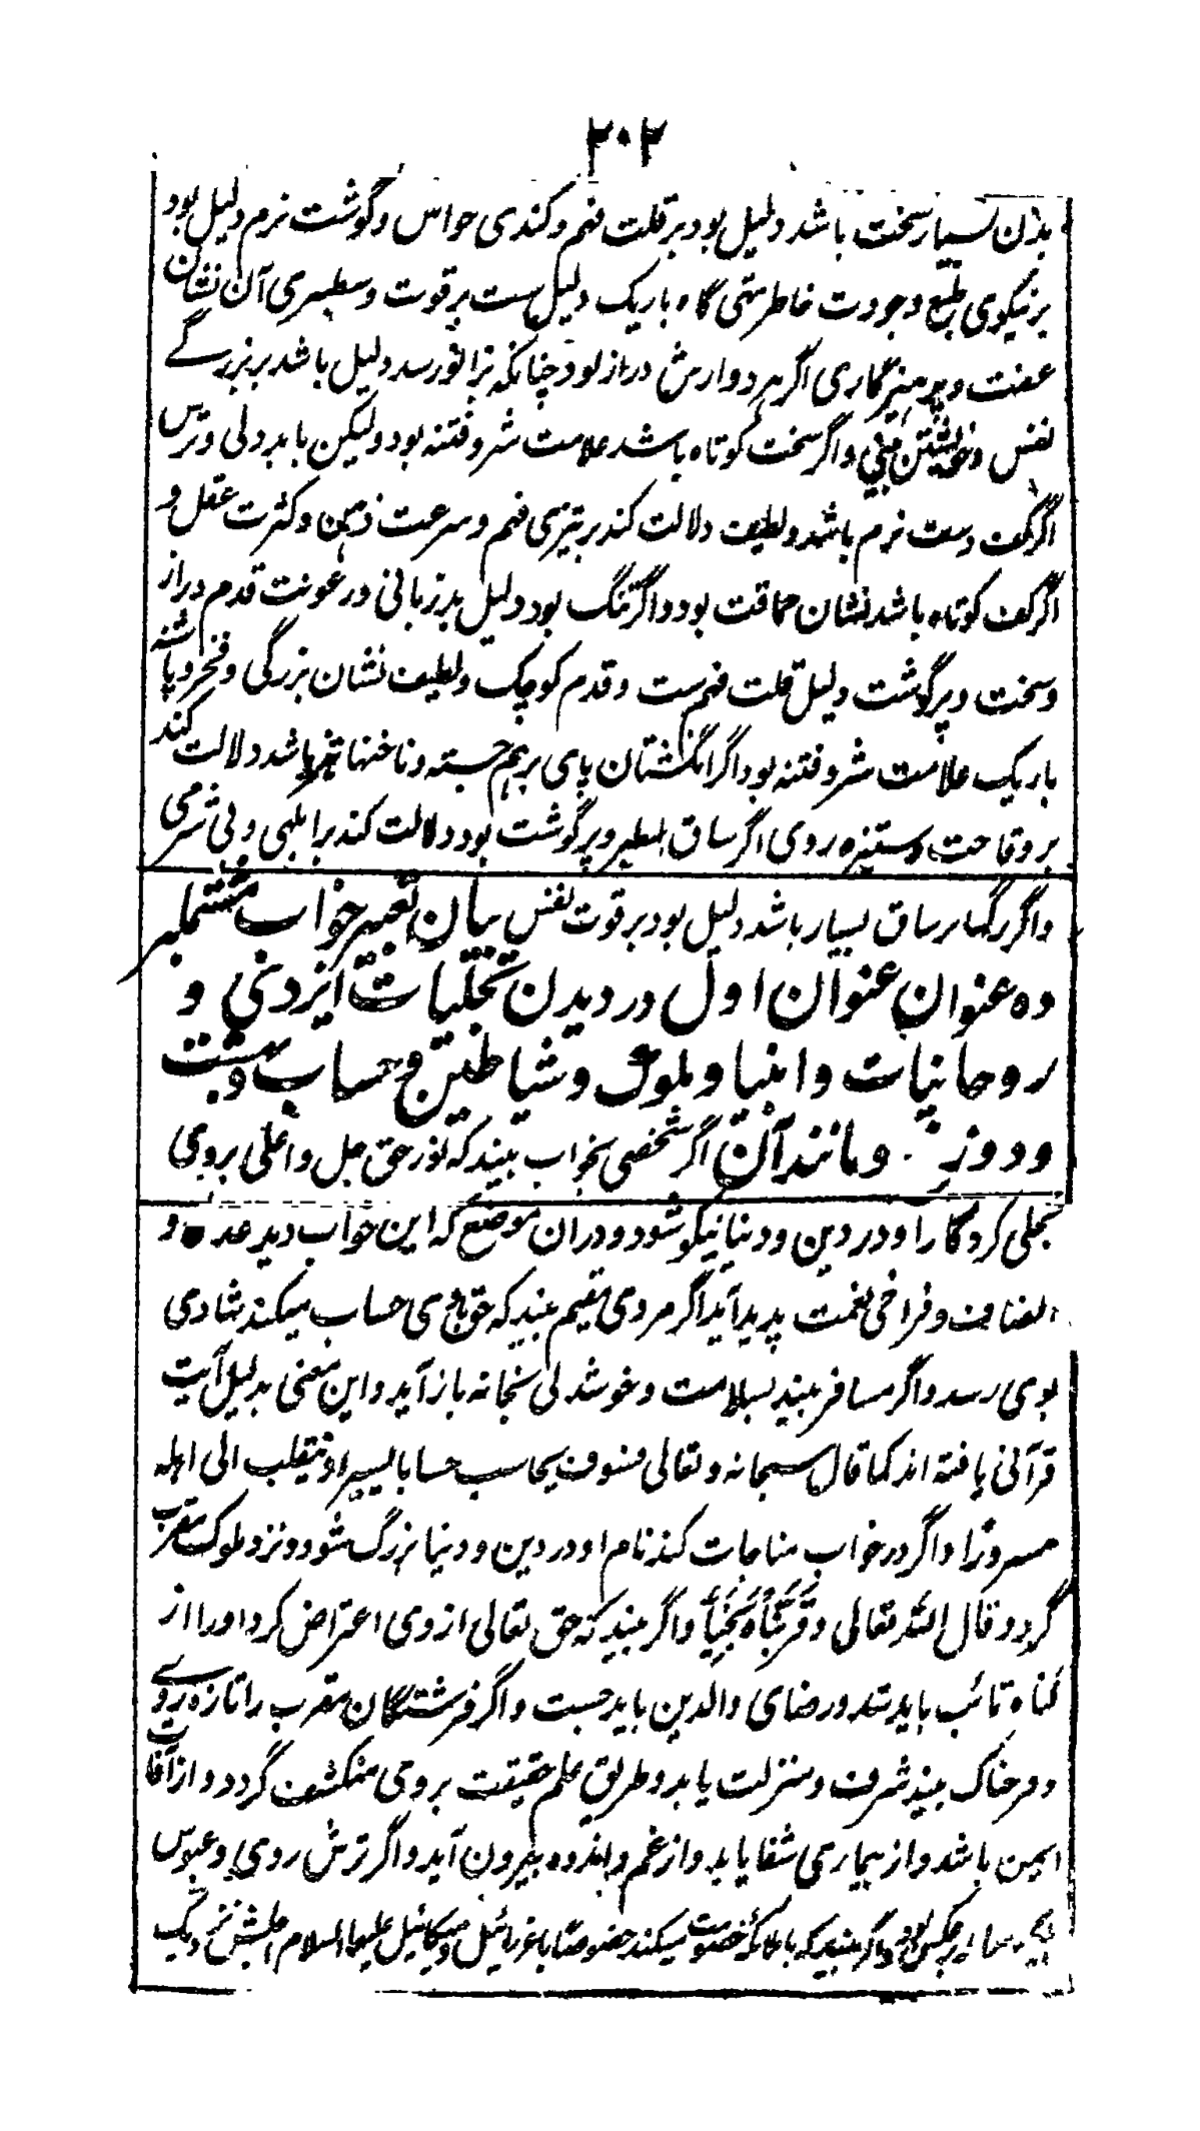 ۲۰۲
بدن بسیار سخت باشد دلیل بود بر قلت فهم و کندی حواس و گوشت نرم دلیل بود
بر نیکوی طبع و جودت خاطر تهی گاه باریک دلیل ست بر قوت و سطبری آن نشان
عفت و پرهیزگاری اگر هر دو ارش دراز بود چنانکه بزانو رسد دلیل باشد بر بزرگے
نفس و خویشتن بینی و اگر سخت کوتاه باشد علامت شر و فتنه بود ولیکن با بددلی و ترس
اگر کف دست نرم باشد و لطیف دلالت کند بر تیزی فهم و سرعت ذهن و کثرت عقل و
اگر کف کوتاه باشد نشان حماقت بود و اگر تنگ بود دلیل بدزبانی و رعونت قدم دراز
و سخت و پرگوشت دلیل قلت فهم ست و قدم کوچک و لطیف نشان بزرگی و فخر و پاشنه
باریک علامت شر و فتنه بود اگر انگشتان پای برهم جسته و ناخنها تیز باشد دلالت کند
بر وقاحت و ستیزه روی اگر ساق سطبر و پرگوشت بود دلالت کند بر ابلهی و بی شرمی
و اگر رگها بر ساق بسیار باشد دلیل بود بر قوت نفس بیان تعبیر خواب مشتملبر
ده عنوان عنوان اول در دیدن تجلیات ایزدی و
روحانیات و انبیا و ملوک و شیاطین و حساب و بهشت
و دوزخ و مانند آن اگر شخصی بخواب بیند که نور حق جل و اعلی بروی
تجلی کرد کار او در دین و دنیا نیکو شود و دران موضع که این خواب دید عدل و
انصاف و فراخی نعمت پدید آید اگر مردی مقیم بیند که حق با وی حساب میکند شادی
بوی رسد و اگر مسافر بیند بسلامت و خوشدلی بخانه باز آید و این معنی بدلیل آیت
قرآنی یافته اند کما قال سبحانه و تعالی فسوف یحاسب حسابا یسیرا و ینقلب الی اهله
مسرورا و اگر در خواب مناجات کند نام او در دین و دنیا بزرگ شود و نزد ملوک مقرب
گردد قال الله تعالی وَقَرَّبْنَاهُ نَجِیًّا و اگر بیند که حق تعالی از وی اعتراض کرد او را از
گناه تائب باید شد و رضای والدین باید جست و اگر فرشتگان مقرب را تازه روے
و فرحناک بیند شرف و منزلت یابد و طریق علم حقیقت بروی منکشف گردد و از آفات
ایمن باشد و از بیماری شفا یابد و از غم و اندوه بیرون آید و اگر ترش روی و عبوس
بیند برعکس بود و اگر بیند که با ملائکه خصومت میکند خصوصًا با عزرائیل و میکائیل علیهما السلام اجلش نزدیک